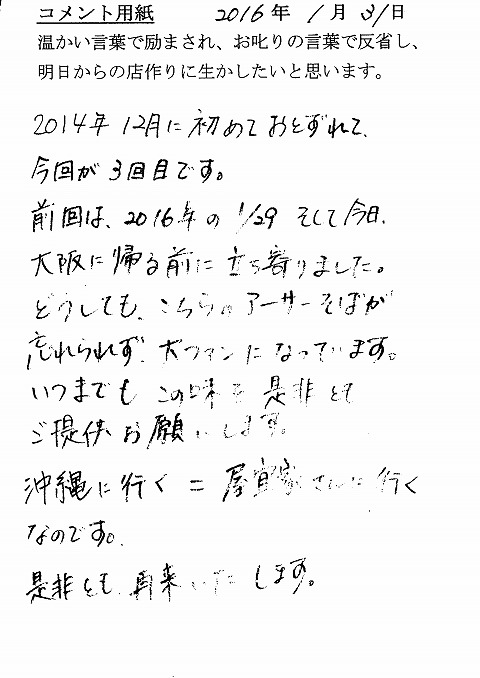 コメント用紙 2016年 1月 31日
温かい言葉で励まされ、お叱りの言葉で反省し、
明日からの店作りに生かしたいと思います。
2014年 12月に初めておとずれて、
今回が3回目です。
前回は、2016年の 1/29 そして今日、
大阪に帰る前に立ち寄りました。
どうしても、こちらのアーサーそばが
忘れられず、大ファンになっています。
いつまでも この味を 是非とも
ご提供お願いします。
沖縄に行く = 屋宜家さんに行く
なのです。
是非とも、再来いたします。